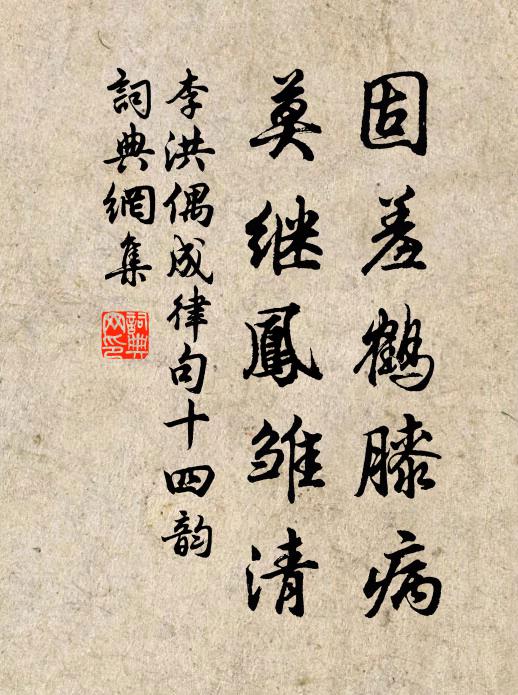 固羞鹤膝病
莫继鳳雏清
李洪偶成律句十四韵
詞典網集
詞典
网印